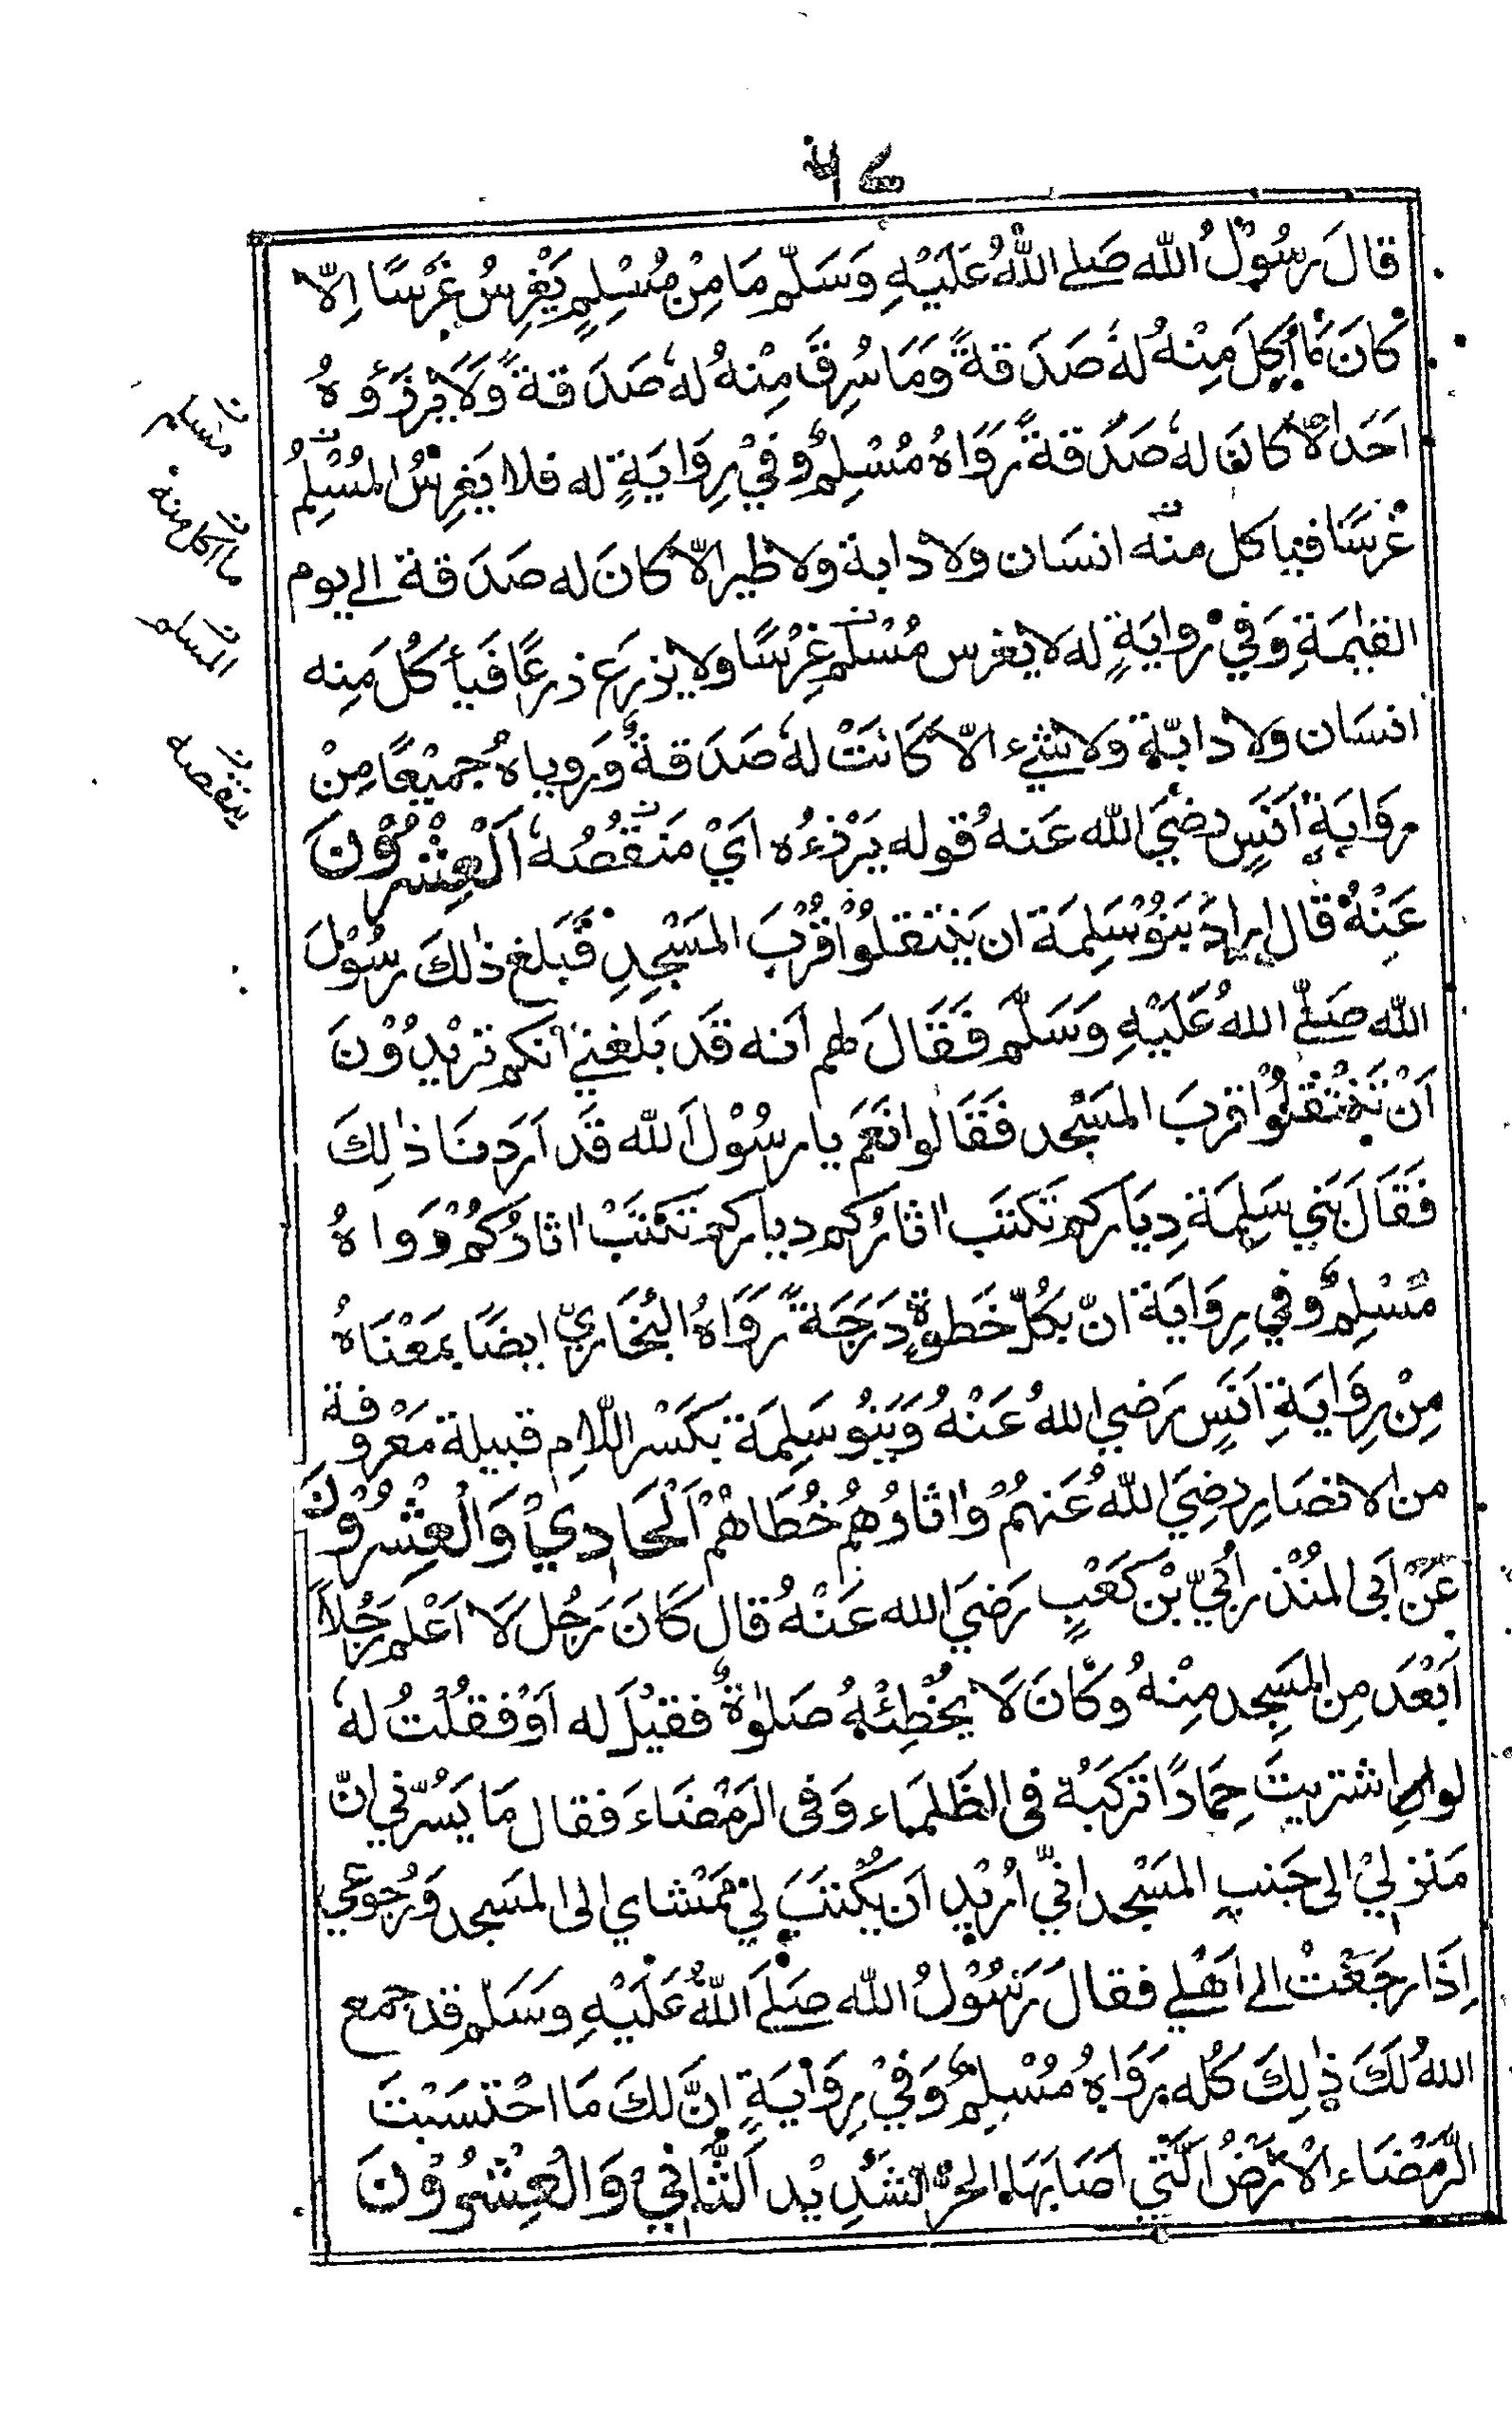 قَالَ رَسُوْلُ اللّٰه صَلے اللّٰهُ عَلَيْهِ وَسَلّم مَا مِنْ مُسْلِمٍ يَغْرِسُ غَرْسًا اِلّا
كَانَ مَا أُكِلَ مِنْهُ لهٗ صَدَقةً وَمَا سُرِقَ مِنْهُ لهٗ صَدَقةً وَلَا يَرْزَؤهُ
اَحَد الّا كانَ لهٗ صَدَقةً رَوَاهُ مُسْلِمٌ وفي رِوَايَةٍ له فلا يَغرِسُ المُسْلِمُ
غَرسًا فياكل منه انسَان ولا دابة ولا طير الّا كانَ له صَدَقة الے يوم
القيٰمَةِ وَفي رِوايَةٍ له لا يَغرس مُسْلم غَرْسًا ولا يَزرَع زرعًا فَيأكُلَ مِنه
انسَان ولا دابّة ولا شيء الّا كانَتْ لهٗ صَدَقةٌ وَروياهُ جمِيْعًا مِنْ
رِوَايَةِ اَنَسٍ رضيَ الله عَنهُ قوله يَرْزءُه اَيْ مَنقُصُهٗ اَلْعِشْرُوْنَ
عَنْهُ قال اراد بَنُوْ سَلِمَة ان يَنْتقلُوْا قُرْبَ المَسْجِدِ فَبَلغ ذٰلكَ رسُوْلَ
اللّٰه صَلّے اللهُ عَلَيْهِ وَسَلَّم فَقَالَ لهم اَنه قَد بَلغني انكم تريْدُوْنَ
اَنْ تَنْتقلُوْا قربَ المَسْجد فَقَالوا نَعَم يا رسُوْلَ اللّٰه قَد اَرَدنَا ذٰلِكَ
فَقَالَ بَني سَلِمَة دِيَاركم تكتَب اثارُكم دياركم تكتَبْ اثارُكُمْ رَوَاهُ
مُسْلِمٌ وفي رِوَايَة انّ بكُلّ خَطوةٍ دَرَجَةً رَوَاهُ البُخَاريّ ايضًا بمَعْنَاهُ
مِنْ رِوَايَةِ اَنَسٍ رَضي اللهُ عَنْهُ وَبَنُو سَلِمَة بكَسْر اللّامِ قبيلة مَعْرُوفة
من الانصَار رضِيَ اللّٰهُ عَنهُمْ وَاثارُهم خُطَاهُمْ اَلْحَادِيْ وَالْعِشْرُوْنَ
عَنْ اَبى المُنْذر اُبَيّ بْن كَعْبٍ رَضيَ الله عَنْهُ قال كَانَ رَجُل لَا اَعْلم رَجُلًا
اَبْعَد مِن المَسِجد مِنْهُ وكَانَ لَا يُخْطِئهُ صَلٰوةٌ فقيْلَ له اَوْ فقُلْتُ لهٗ
لو اشتريتَ حِمَارًا تركَبُهٗ فى الظَلمَاء وَفى الرَمْضَاءَ فقال مَا يَسُرّني انّ
مَنزليْ الى جَنبِ المَسْجد انيّ اُريْد اَن يُكْتَبَ لي مَمْشاي الى المَسجد وَرُجوْعي
اِذَا رجَعْتُ الے اَهْلي فقالَ رَسُوْلُ اللّٰه صَلّے اَللّٰهُ عَلَيْهِ وسَلم قد جمع
اللهُ لَكَ ذٰلِكَ كُله رَوَاهُ مُسْلِمٌ وَفيْ رِوَايَةٍ اِنَّ لكَ مَا احْتَسَبْتَ
الرَّمْضَاء الاَرْضُ الَّتي اَصَابَهَا الحرّ الشَدِيْد اَلثَّانيْ وَالْعِشْرُوْنَ
مسلم
ما اكل منه
المسلم
ينقصه